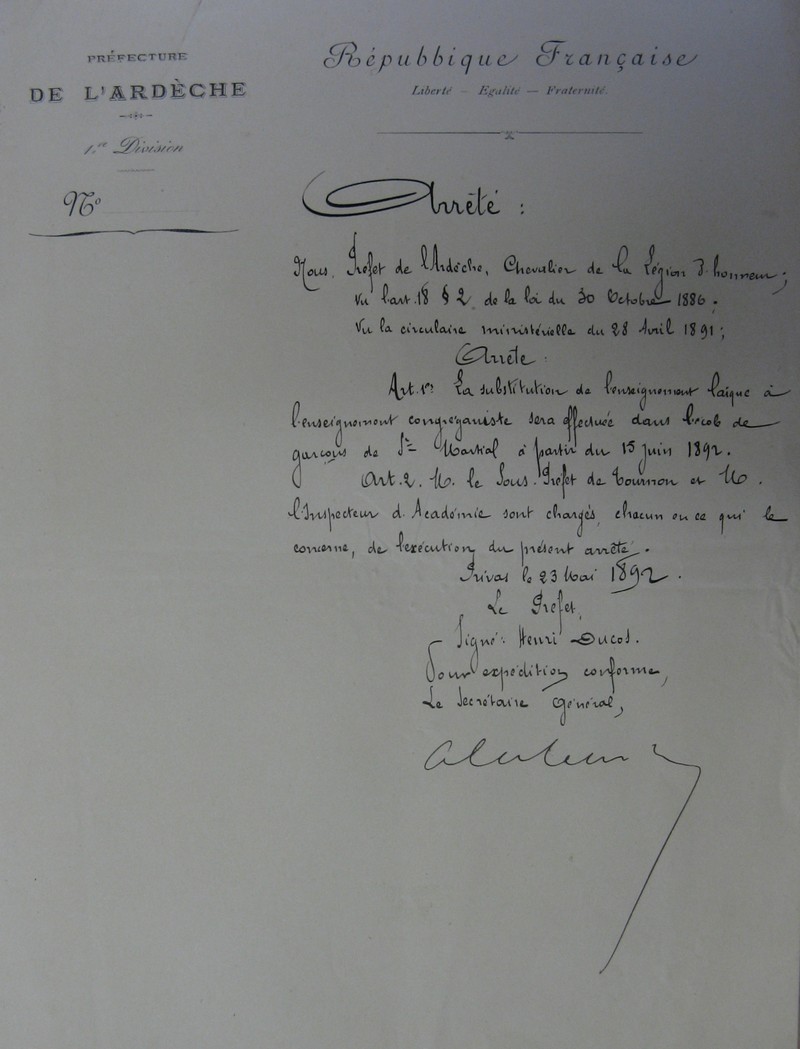 PRÉFECTURE
DE L'ARDÈCHE
1.re Division
No
République Française
Liberté – Egalité – Fraternité.
Arrêté :
Nous, Préfet de l'Ardèche, Chevalier de la Légion d'honneur ;
Vu l'art. 18 § 2 de la loi du 30 Octobre 1886 ;
Vu la circulaire ministérielle du 28 Avril 1891 ;
Arrête :
Art. 1er La substitution de l'enseignement laïque à
l'enseignement congréganiste sera effectuée dans l'école de
garçons de St Martial à partir du 15 juin 1892.
Art. 2. M. le Sous-Préfet de Tournon et M.
l'Inspecteur d'Académie sont chargés, chacun en ce qui le
concerne, de l'exécution du présent arrêté.
Privas le 23 Mai 1892.
Le Préfet,
Signé : Henri Ducos.
Pour expédition conforme,
Le Secrétaire Général,